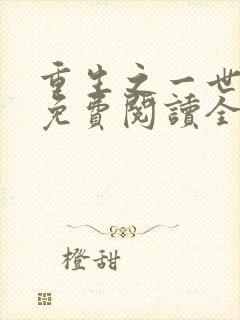 重生之一世
免費閱讀全
橙甜